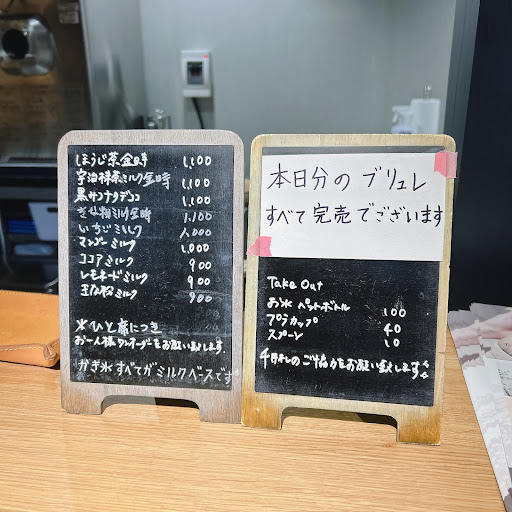 ほうじ茶金時 1,100
宇治抹茶ミルク金時 1,100
黒サンタデココ 1,100
きな粉ミルク金時 1,100
いちごミルク 1,000
マンゴーミルク 1,000
ココアミルク 900
レモネードミルク 900
ミルク 900
※ひと席につき
お一人様ワンオーダーをお願い致します。
かき氷すべてがミルクベースです
本日分のブリュレ
すべて完売でございます
Take Out
お水 ペットボトル 100
プラカップ 40
スプーン 10
のご協力をお願い致します